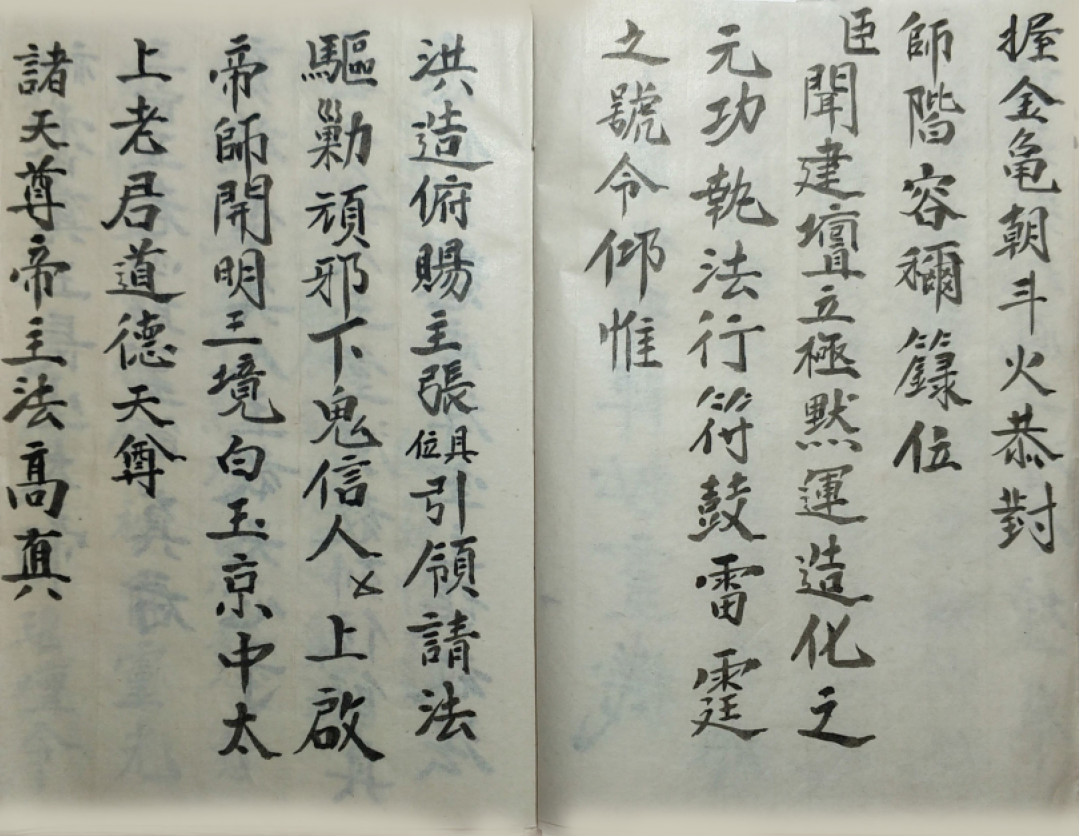 握金龟朝斗火恭對
師階容禰籙位
臣聞建壇立極默運造化之
元功執法行符鼓雷霆
之號令仰惟
洪造俯賜主張具位引領請法
驅勦頑邪下鬼信人乂上啟
帝師開明三境白玉京中太
上老君道德天尊
諸天尊帝主法高真